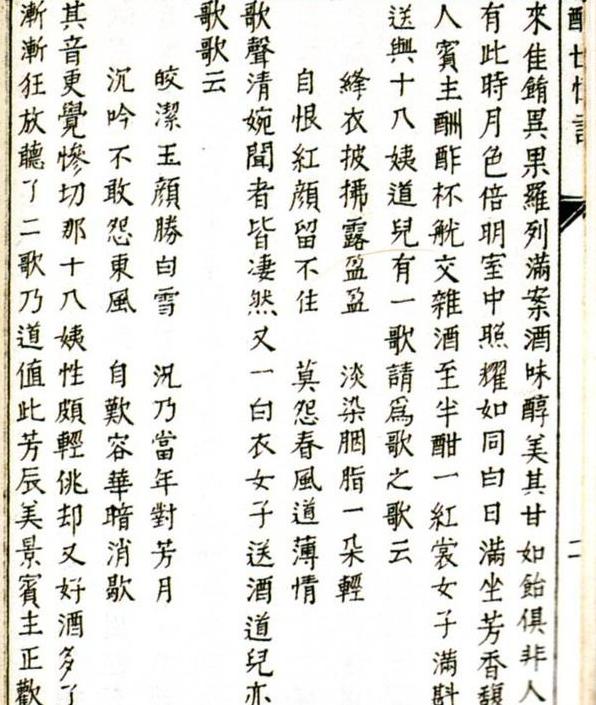 醒世恒言
二
來佳餚異果羅列滿案酒味醇美其甘如飴俱非人
有此時月色倍明室中照耀如同白日滿坐芳香馥
人賓主酬酢杯觥交雜酒至半酣一紅裳女子滿斟
送與十八姨道兒有一歌請爲歌之歌云
絳衣披拂露盈盈 淡染胭脂一朵輕
自恨紅顔留不住 莫怨春風道薄情
歌聲清婉聞者皆凄然又一白衣女子送酒道兒亦
歌歌云
皎潔玉顔勝白雪 況乃當年對芳月
沉吟不敢怨東風 自歎容華暗消歇
其音更覺慘切那十八姨性頗輕佻却又好酒多了
漸漸狂放聽了二歌乃道值此芳辰美景賓主正歡